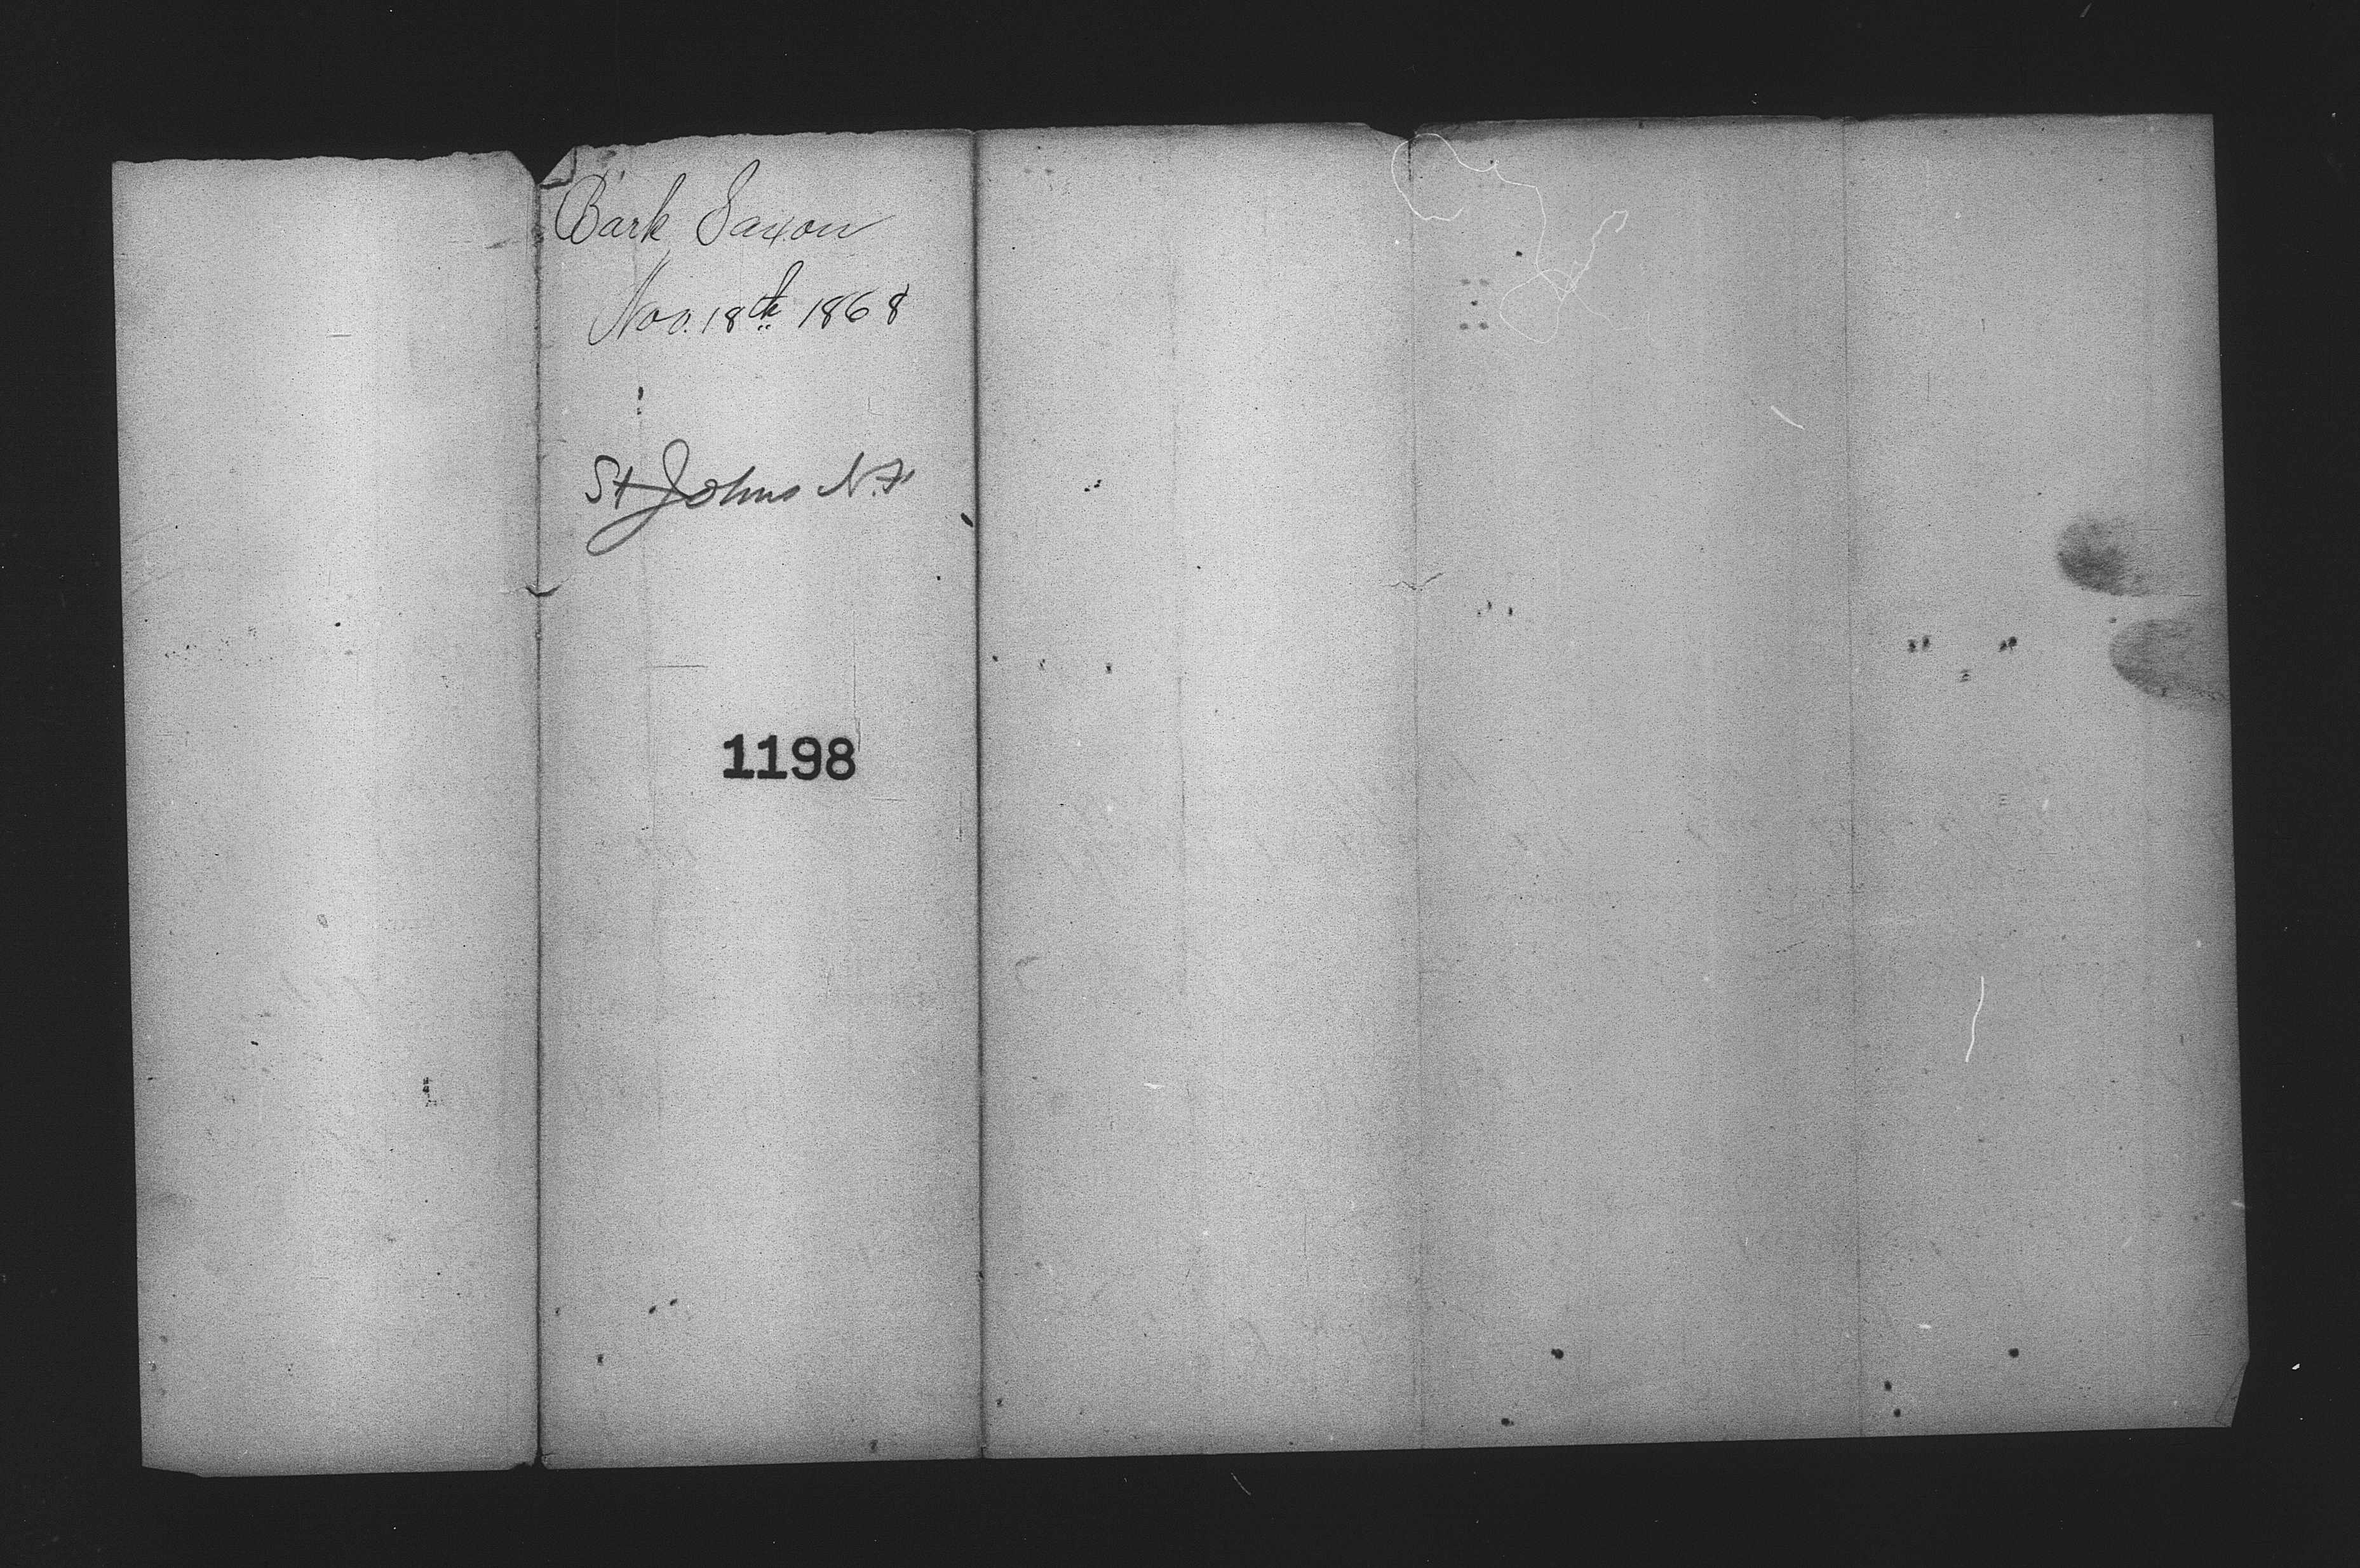 Bark Saxon
Nov. 18th 1868
St Johns N.F.
1198